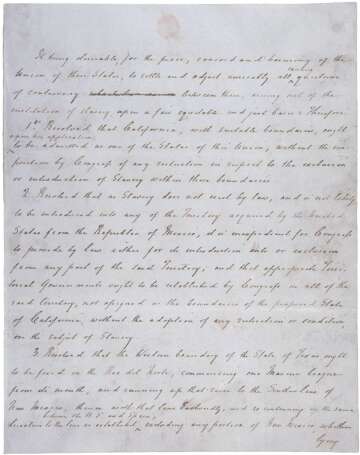 It being desirable, for the peace, concord and harmony of the
Union of these States, to settle and adjust amicably all existing questions
of controversy between them, arising out of the
institution of slavery, upon a fair equitable and just basis: Therefore
1st Resolved, that California, with suitable boundaries, ought
upon her application
to be admitted as one of the States of this Union, without the im-
position by Congress of any restriction in respect to the exclusion
or introduction of Slavery within those boundaries.
2. Resolved that as Slavery does not exist by law, and is not likely
to be introduced into any of the Territory acquired by the United
States from the Republic of Mexico, it is inexpedient for Congress
to provide by law, either for its introduction into or exclusion
from any part of the said Territory; and that appropriate Terri-
torial Governments ought to be established by Congress in all of the
said territory, not assigned as the boundaries of the proposed State
of California, without the adoption of any restriction or condition
on the subject of Slavery
3. Resolved that the Western boundary of the State of Texas ought
to be fixed on the Rio del Norte, commencing one Marine league
from its mouth, and running up that river to the Southern line of
New Mexico, thence with that line Eastwardly, and so continuing in the same
between the U.S. and Spain;
direction to the line as established, excluding any portion of New Mexico whether
lying